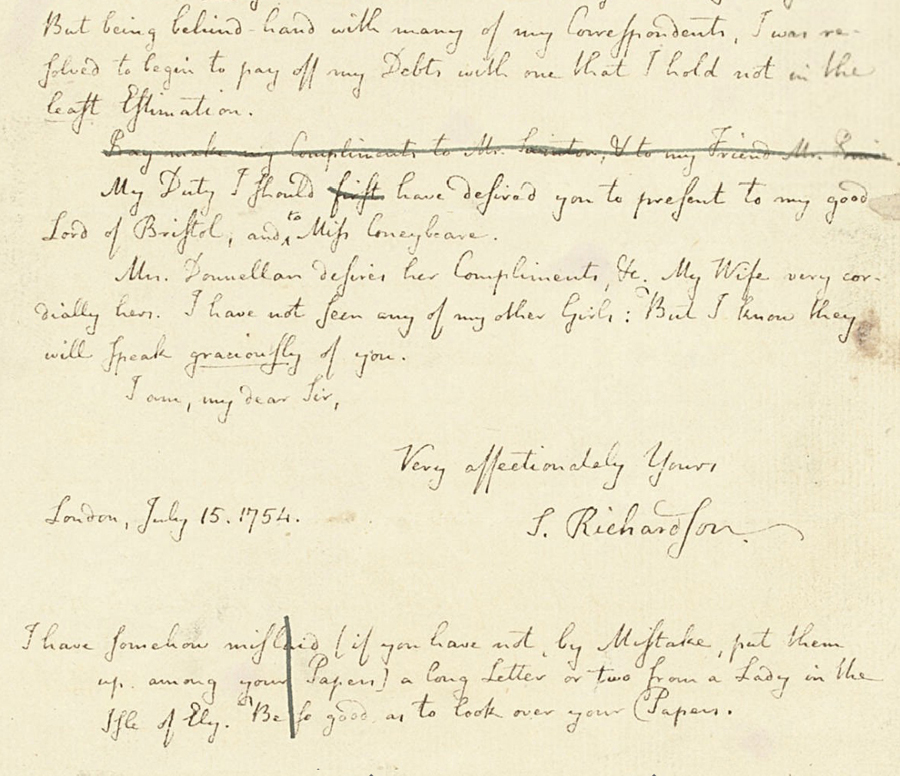 But being behind-hand with many of my Correspondents, I was re-
solved to begin to pay off my Debts with one that I hold not in the
least Estimation.
Pray make my Compliments to Mr. & to my Friend Mr.
My Duty I should first have desired you to present to my good
Lord of Bristol, and to Miss Coneybeare.
Mrs. Donnellan desires her Compliments, &c. My Wife very cor-
dially hers. I have not seen any of my other Girls: But I know they
will speak graciously of you.
I am, my dear Sir,
Very affectionately Yours
S. Richardson.
London, July 15. 1754.
I have somehow mislaid (if you have not, by Mistake, put them
up among your Papers) a long Letter or two from a Lady in the
Isle of Ely. Be so good as to look over your Papers.